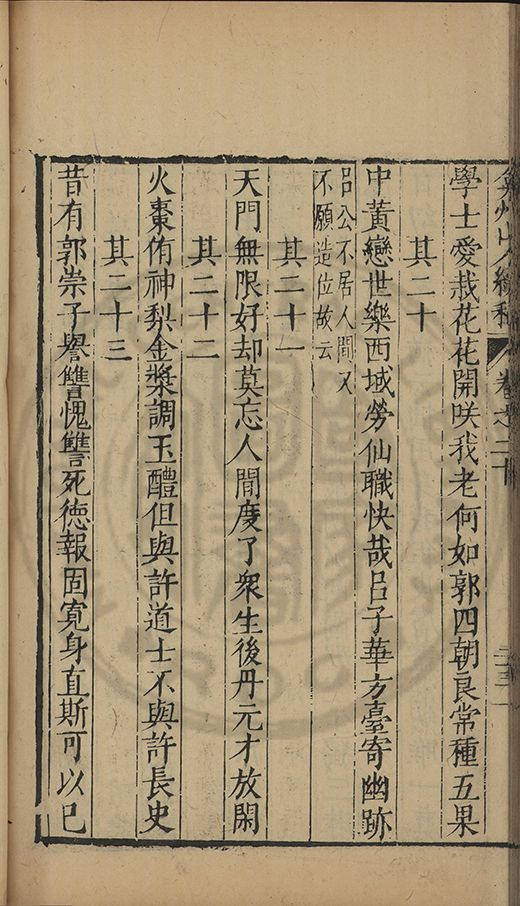 弇州山人續稿 卷之二十
學士愛栽花花開咲我老何如郭四朝良常種五果
其二十
中黃戀世樂西域勞仙職快哉呂子華方臺寄幽跡
呂公不居人間又
不願造位故云
其二十一
天門無限好却莫忘人間度了衆生後丹元才放閑
其二十二
火棗侑神梨金漿調玉醴但與許道士不與許長史
其二十三
昔有郭崇子譽讐愧讐死德報固寬身直斯可以已